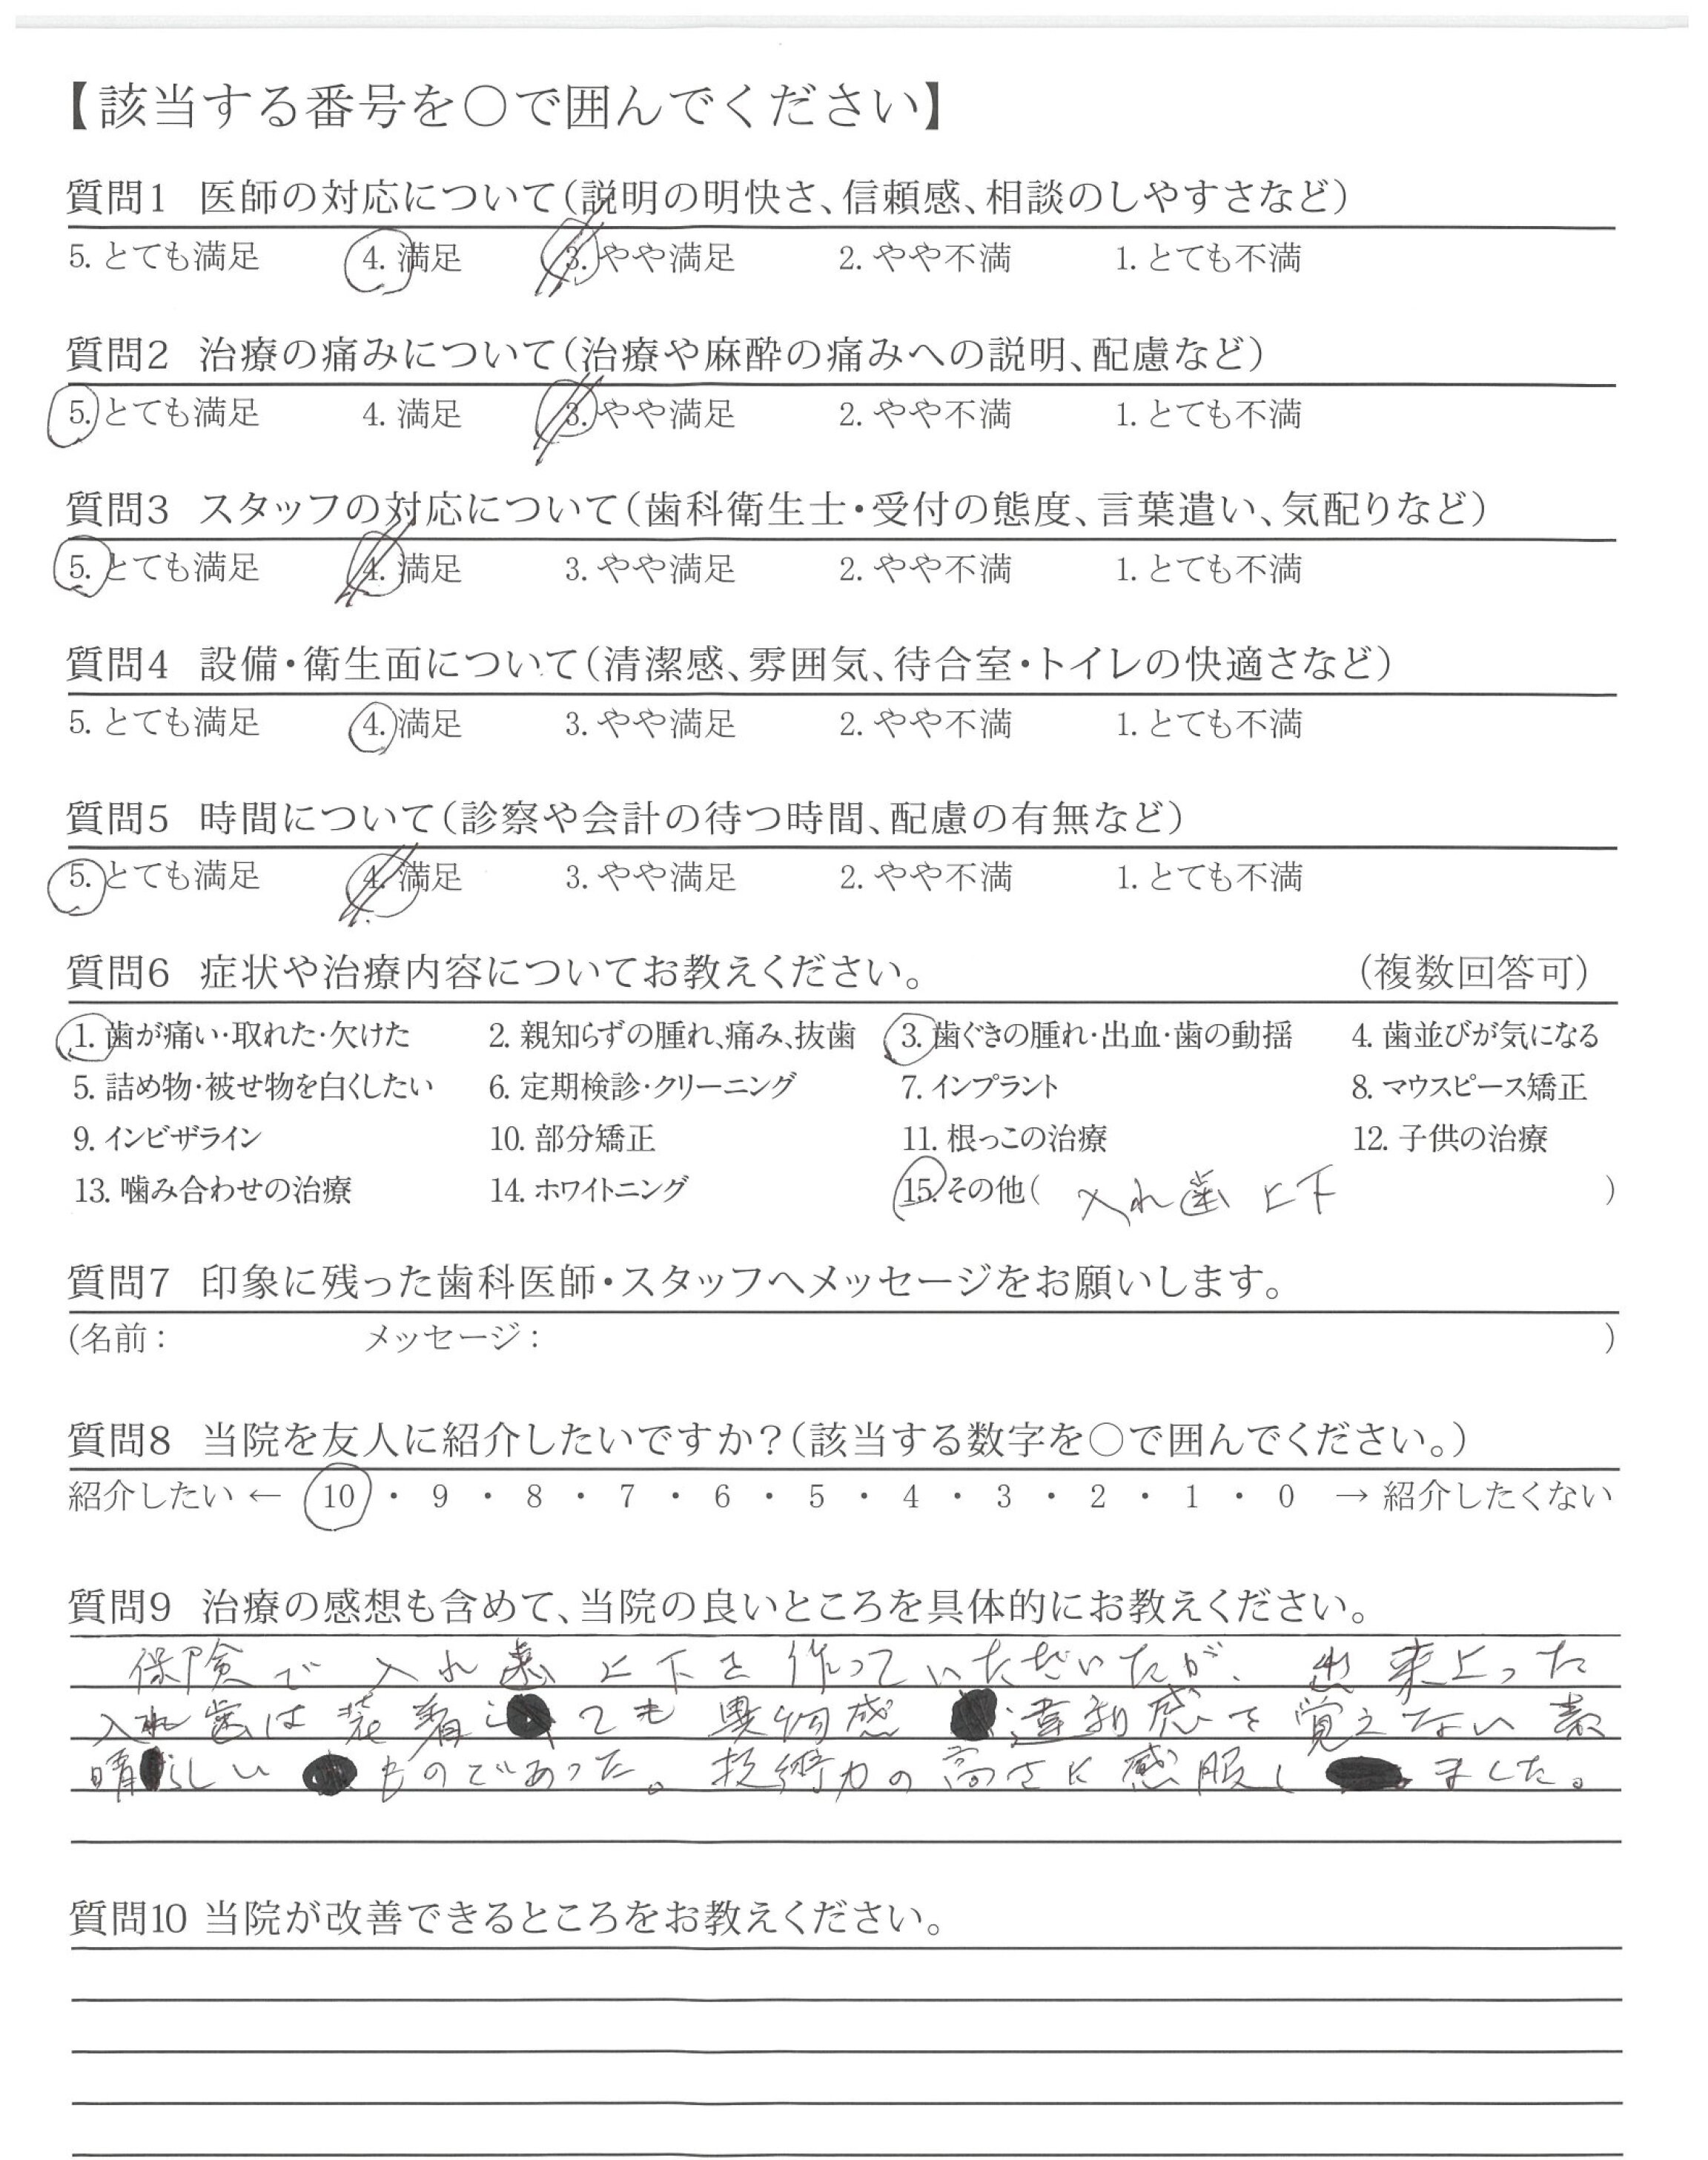 【該当する番号を○で囲んでください】
質問1 医師の対応について(説明の明快さ、信頼感、相談のしやすさなど)
5. とても満足 4. 満足 3. やや満足 2. やや不満 1. とても不満
質問2 治療の痛みについて(治療や麻酔の痛みへの説明、配慮など)
5. とても満足 4. 満足 3. やや満足 2. やや不満 1. とても不満
質問3 スタッフの対応について(歯科衛生士・受付の態度、言葉遣い、気配りなど)
5. とても満足 4. 満足 3. やや満足 2. やや不満 1. とても不満
質問4 設備・衛生面について(清潔感、雰囲気、待合室・トイレの快適さなど)
5. とても満足 4. 満足 3. やや満足 2. やや不満 1. とても不満
質問5 時間について(診察や会計の待つ時間、配慮の有無など)
5. とても満足 4. 満足 3. やや満足 2. やや不満 1. とても不満
質問6 症状や治療内容についてお教えください。 (複数回答可)
1. 歯が痛い・取れた・欠けた 2. 親知らずの腫れ、痛み、抜歯 3. 歯ぐきの腫れ・出血・歯の動揺 4. 歯並びが気になる
5. 詰め物・被せ物を白くしたい 6. 定期検診・クリーニング 7. インプラント 8. マウスピース矯正
9. インビザライン 10. 部分矯正 11. 根っこの治療 12. 子供の治療
13. 噛み合わせの治療 14. ホワイトニング 15. その他( 入れ歯 上下 )
質問7 印象に残った歯科医師・スタッフへメッセージをお願いします。
(名前: メッセージ: )
質問8 当院を友人に紹介したいですか?(該当する数字を○で囲んでください。)
紹介したい ← 10 ・ 9 ・ 8 ・ 7 ・ 6 ・ 5 ・ 4 ・ 3 ・ 2 ・ 1 ・ 0 → 紹介したくない
質問9 治療の感想も含めて、当院の良いところを具体的にお教えください。
保険で入れ歯上下を作っていただいたが、出来上った
入れ歯は装着しても異物感違和感を覚えない素
晴らしいものであった。技術力の高さに感服しました。
質問10 当院が改善できるところをお教えください。